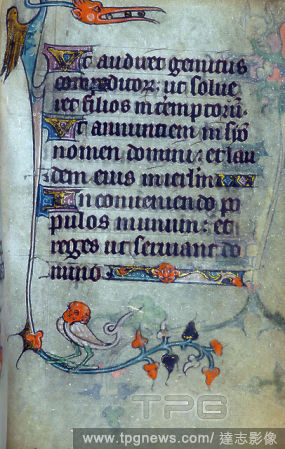 Ut audiret gemitus
compeditorum: ut solve
ret filios interemptorū.
Ut annuntient in syō
nomen domini: et lau
dem eius in ierlm
In conveniendo po
pulos in unum: et
reges ut serviant do
mino
TPG
www.tpgnews.com/ 達志影像